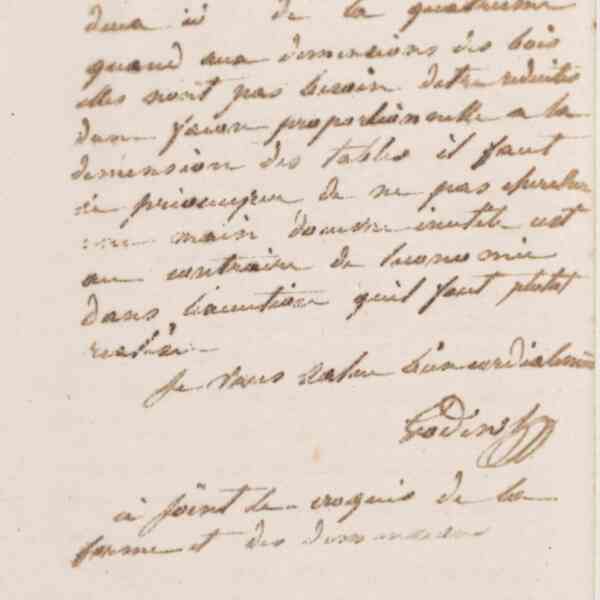 de la quatrieme
quand aux dimensions des bois
elles nont pas besoin detre reduites
dune facon proportionnelle a la
dimension des tables il faut
se préoccuper de ne pas chercher
une main doeuvre inutile cest
au contraire de leconomie
dans lexecution quil faut plutot
realiser
Je vous salue bien cordialement
Godin
ci joint le croquis de la
forme et des dimensions